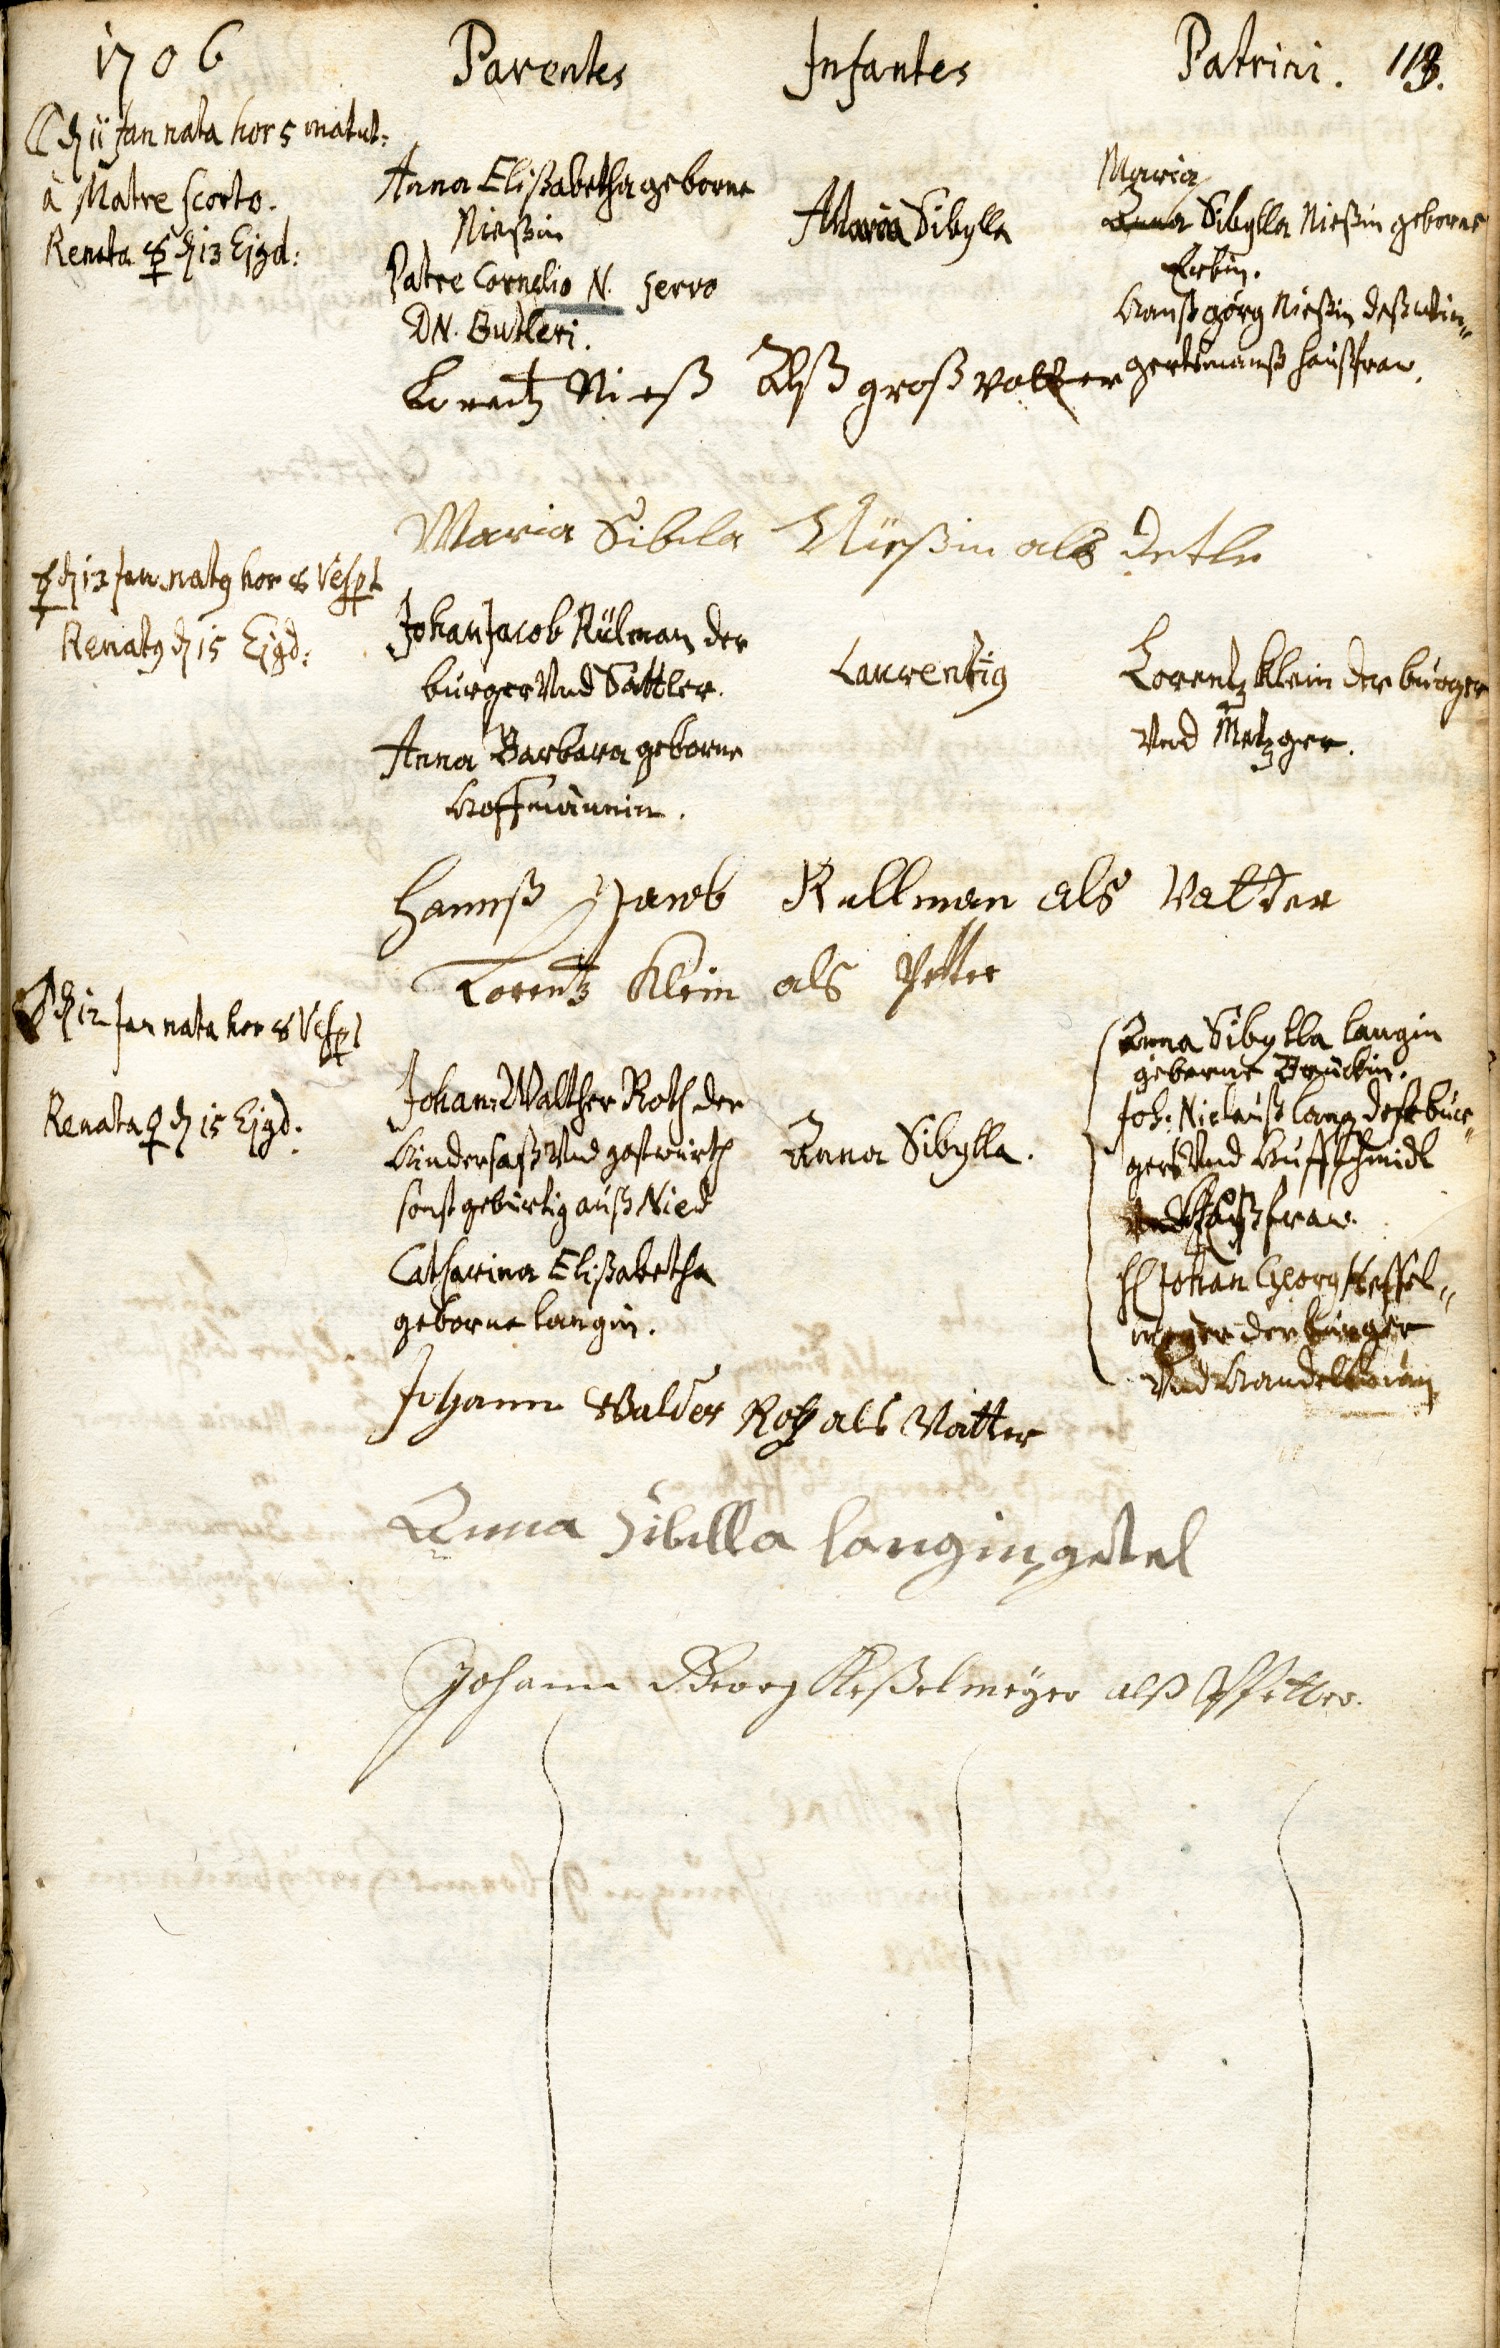 1706 Parentes Infantes Patrini. 113.
☾ d 11 Jan nata hor 5 matut:
à Matre scorto.
Renata ☿ d 13 Ejgd:
Anna Elißabetha geborne
Nießin
Patre Cornelio N. servo
DN. Butleri.
Maria Sibylla
Maria
Anna Sibylla Nießin geborne
Hanß görg Nießin deß win„
gertsmanß haußfrau.
Lorentz Nieß Alß groß vatter
Maria Sibila Nießin als
☿ d 13 Jan. natg hor 8 Vespt
Renatg d 15 Ejgd:
Johan Jacob Külman der
burger Vnd Sattler.
Anna Barbara geborne
Hoffmännin.
Laurentig
Lorentz Klein der burger
Vnd Metzger.
Hannß Jacob Kullman als Vatter
Lorentz Klein als Petter
d 12 Jan nata hor 8 Vespt
Renata ♀ d 15 Ejgd:
Johan Walther Roth der
Hindersaß Vnd gastwürth
sonst gebürtig auß Nied
Catharina Elißabetha
geborne langin.
Anna Sibylla.
Anna Sibylla langin
geborne Brückin.
Joh: Niclauß lang deß bur„
gers Vnd Huffschmidt
haußfrau.
H Johan Georg Keßel„
meyer der burger
Vnd Handelsman
Johann Walder Roth als Vatter
Anna Sibilla langin, getel
Johann Georg Keßelmeyer alß Pfetter.